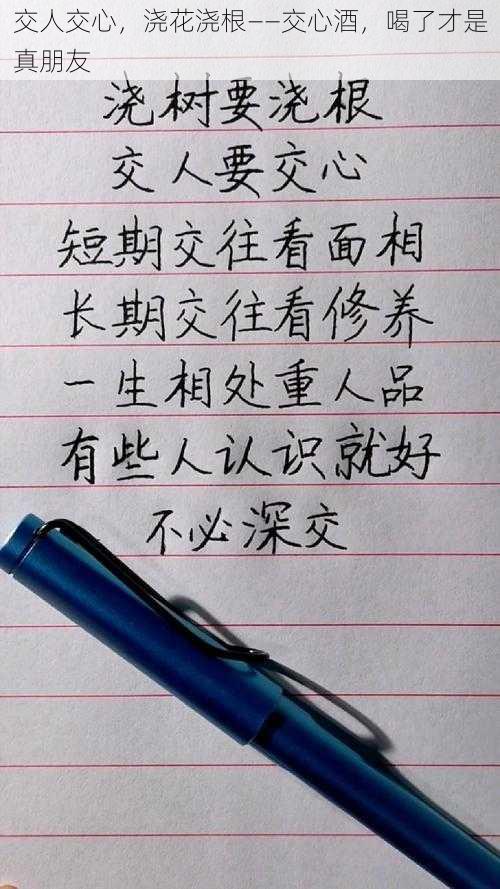 交人交心，浇花浇根——交心酒，喝了才是
真朋友
浇树要浇根
交人要交心
短期交往看面相
长期交往看修养
一生相处重人品
有些人认识就好
不必深交